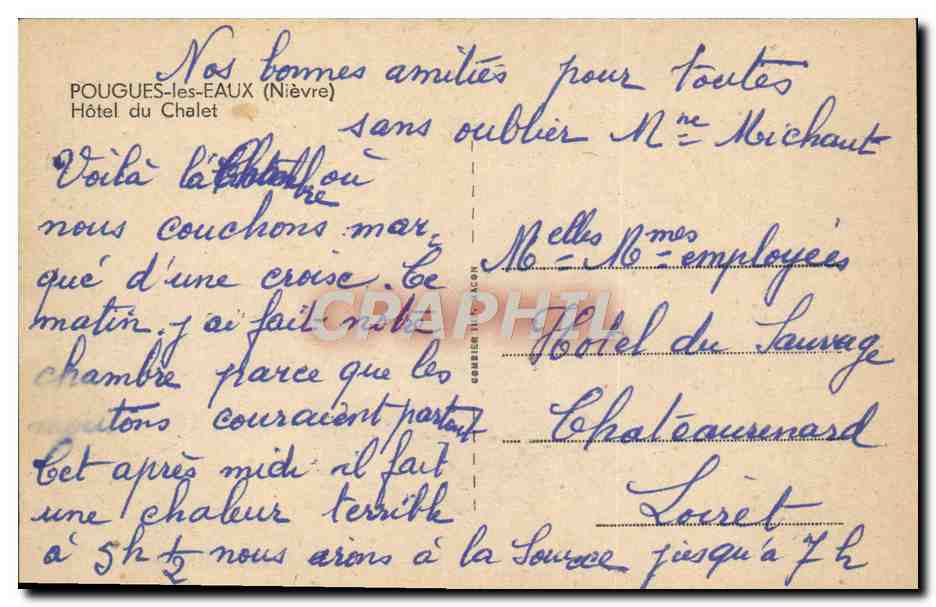 Nos bonnes amitiés pour toutes
sans oublier Mme Michaut
POUGUES-les-EAUX (Nièvre)
Hôtel du Chalet
Voilà la chambre où
nous couchons mar-
qué d'une croise. Ce
matin j'ai fait notre
chambre parce que les
moutons couraient partout
Cet après midi il fait
une chaleur terrible
à 5h ½ nous irons à la Source jusqu'à 7 h
COMBIER IMP. MACON
CPAPHIL
Melles Mmes employées
Hotel du Sauvage
Chateaurenard
Loiret